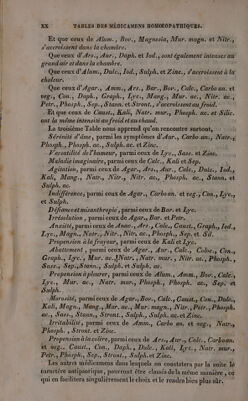 XX TABLES DES MÉDICAMENS HOMOEOPATHIQUES.
Et que ceux de Alum., Bov., Magnesia, Mur. magn. et Nitr.,
s'accroissent dans la chambre.
Que ceux d'Ars., Aur., Daph. et Iod., sont également intenses au
grand air et dans la chambre.
Que ceux d'Alum., Dulc., Iod., Sulph. et Zinc., s'accroissent à la
chaleur.
Que ceux d'Agar., Amm., Ars., Bar., Bov., Calc., Carbo an. et
veg., Con., Daph., Graph., Lyc., Mang., Mur. ac., Nitr. ac.,
Petr., Phosph., Sep., Stann. et Stront., s'accroissent au froid.
Et que ceux de Caust., Kali, Natr. mur., Phosph. ac. et Silic.
ont la même intensité au froid et au chaud.
La troisième Table nous apprend qu'on rencontre surtout,
Sérénité d'âme, parmi les symptômes d'Aur., Carbo an., Natr.,
Phosph., Phosph. ac., Sulph. ac. et Zinc.
Versatilité de l'humeur, parmi ceux de Lyc., Sass. et Zinc.
Maladie imaginaire, parmi ceux de Calc., Kali et Sep.
Agitation, parmi ceux de Agar., Ars., Aur., Calc., Dulc., Iod.,
Kali, Mang., Natr., Nitr., Nitr. ac., Phosph. ac., Stann. et
Sulph. ac.
Indifférence, parmi ceux de Agar., Carbo an. et veg., Con., Lyc.,
et Sulph.
Défiance et misanthropie, parmi ceux de Bar. et Lyc.
Irrésolution, parmi ceux de Agar., Bar. et Petr.
Anxiété, parmi ceux de Amm., Ars., Calc., Caust., Graph., Iod.,
Lyc., Magn., Natr., Nitr., Nitr. ac., Phosph., Sep. et Sil.
Propension à la frayeur, parmi ceux de Kali et Lyc.
Abattement, parmi ceux de Agar., Aur., Calc., Coloc., Con.,
Graph., Lyc., Mur. ac., Natr., Natr. mur., Nitr. ac., Phosph.,
Sass., Sep., Stann., Sulph. et Sulph. ac.
Propension à pleurer, parmi ceux de Alum., Amm., Bov., Calc.,
Lyc., Mur. ac., Petr., Phosph., Phosph. ac., Sep. et
Sulph.
Morosité, parmi ceux de Agar., Bov., Calc., Caust., Con., Dulc.,
Kali, Magn., Mang., Mur. ac., Mur. magn., Nitr., Petr., Phosph.
ac., Sass., Stann., Stront., Sulph., Sulph. ac. et Zinc.
Irritabilité, parmi ceux de Amm., Carbo an. et veg., Natr.,
Phosph., Stront. et Zinc.
Propension à la colère, parmi ceux de Ars., Aur., Calc., Carbo an.
et veg., Caust., Con., Daph., Dulc., Kali, Lyc., Natr. mur.,
Petr., Phosph., Sep., Stront., Sulph. et Zinc.
Les autres médicamens dans lesquels on constatera par la suite le
caractère antipsorique, pourront être classés de la même manière, ce
qui en facilitera singulièrement le choix et le rendra bien plus sûr.